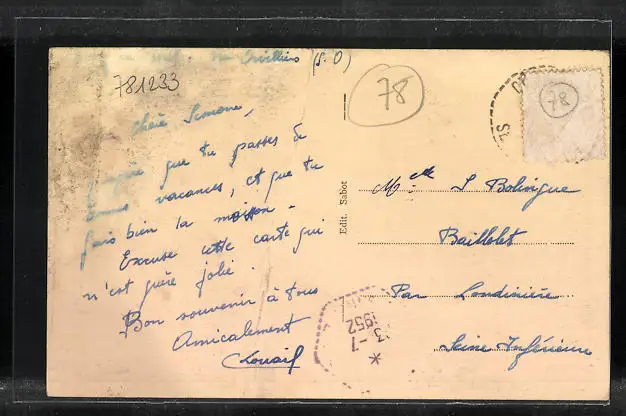 Orvilliers (S. O)
781233
78
78
Chère Simone,
que tu passes de
bonnes vacances, et que tu
fais bien la moisson.
Excuse cette carte qui
n'est guère jolie.
Bon souvenir à tous
Amicalement
Edit. Sabot
Melle S Bolingue
Baillolet
Par Londinière
Seine Inférieure
3 - 7
1952